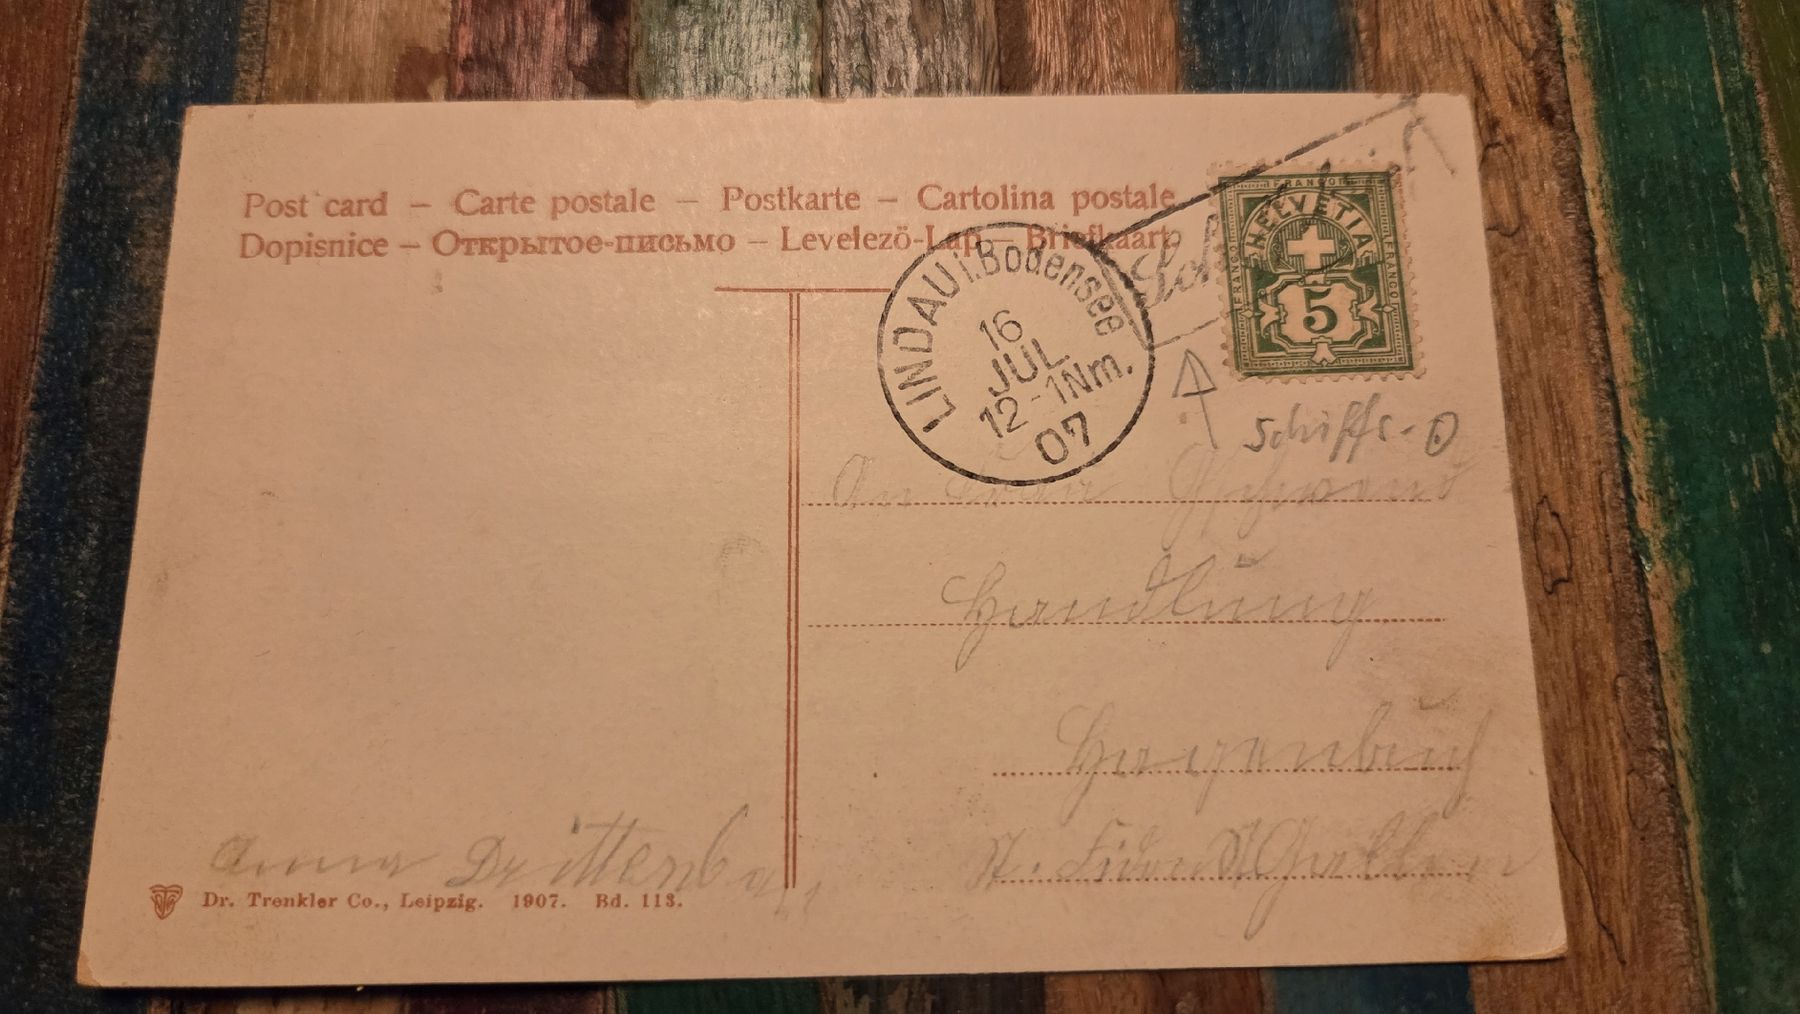 Post card – Carte postale – Postkarte – Cartolina postale
Dopisnice – Открытое-письмо – Levelező-Lap – Briefkaart
LINDAU i. Bodensee
16
JUL
12-1Nm.
07
FRANCO
HELVETIA
FRANCO
FRANCO
5
Schiffs-O
An
Handlung
Hagenbuch
St. Fiden St Gallen
Anna
Dr. Trenkler Co., Leipzig. 1907. Bd. 113.